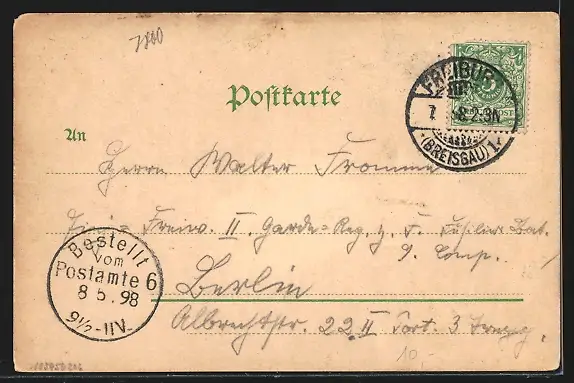 7800
Postkarte
FREIBURG
7. 5. 98. 2-3N
* (BREISGAU) 1 *
An
Herrn Walter Fromme
Einj.-Freiw. II. Garde-Reg. z. F. Füsilier Bat.
9. Comp.
Berlin
Albrechtstr. 22 II Port. 3 Trepp.
Bestellt
vom
Postamte 6
8.5.98
9½-11V.
10.-